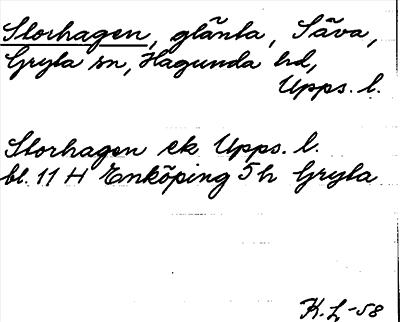 Storhagen, glänta, Säva,
Gryta sn, Hagunda hd,
Upps. l.
Storhagen ek Upps. l.
bl. 11 H Enköping 5 h Gryta
K.L-58